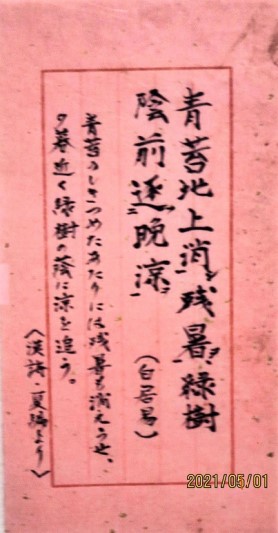 青苔地上消残暑緑樹
陰前逐晩涼
(白居易)
青苔のしきつめたあたりには残暑も消えうせ、
夕暮近く緑樹の蔭に涼を追う。
〈漢詩・夏編より〉
2021/05/01